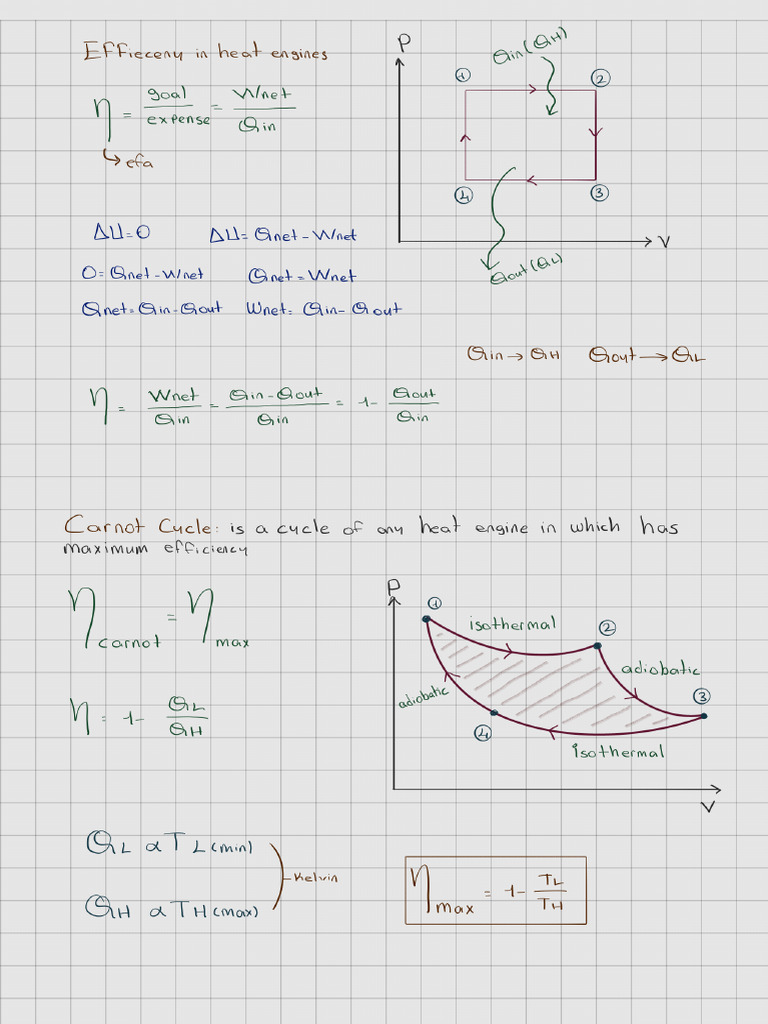 Effieceny in heat engines
η = goal/expense = Wnet/Qin
↳ efa
P
Qin(QH)
① ②
④ ③
V
Qout(QL)
ΔU=0 ΔU=Qnet-Wnet
0=Qnet-Wnet Qnet=Wnet
Qnet=Qin-Qout Wnet=Qin-Qout
Qin→QH Qout→QL
η = Wnet/Qin = Qin-Qout/Qin = 1- Qout/Qin
Carnot Cycle: is a cycle of any heat engine in which has
maximum efficiency
ηcarnot = ηmax
η = 1- QL/QH
P
①
isothermal
②
adiobatic
adiobatic
③
④
isothermal
V
QL α TL(min)
Kelvin
QH α TH(max)
ηmax = 1- TL/TH